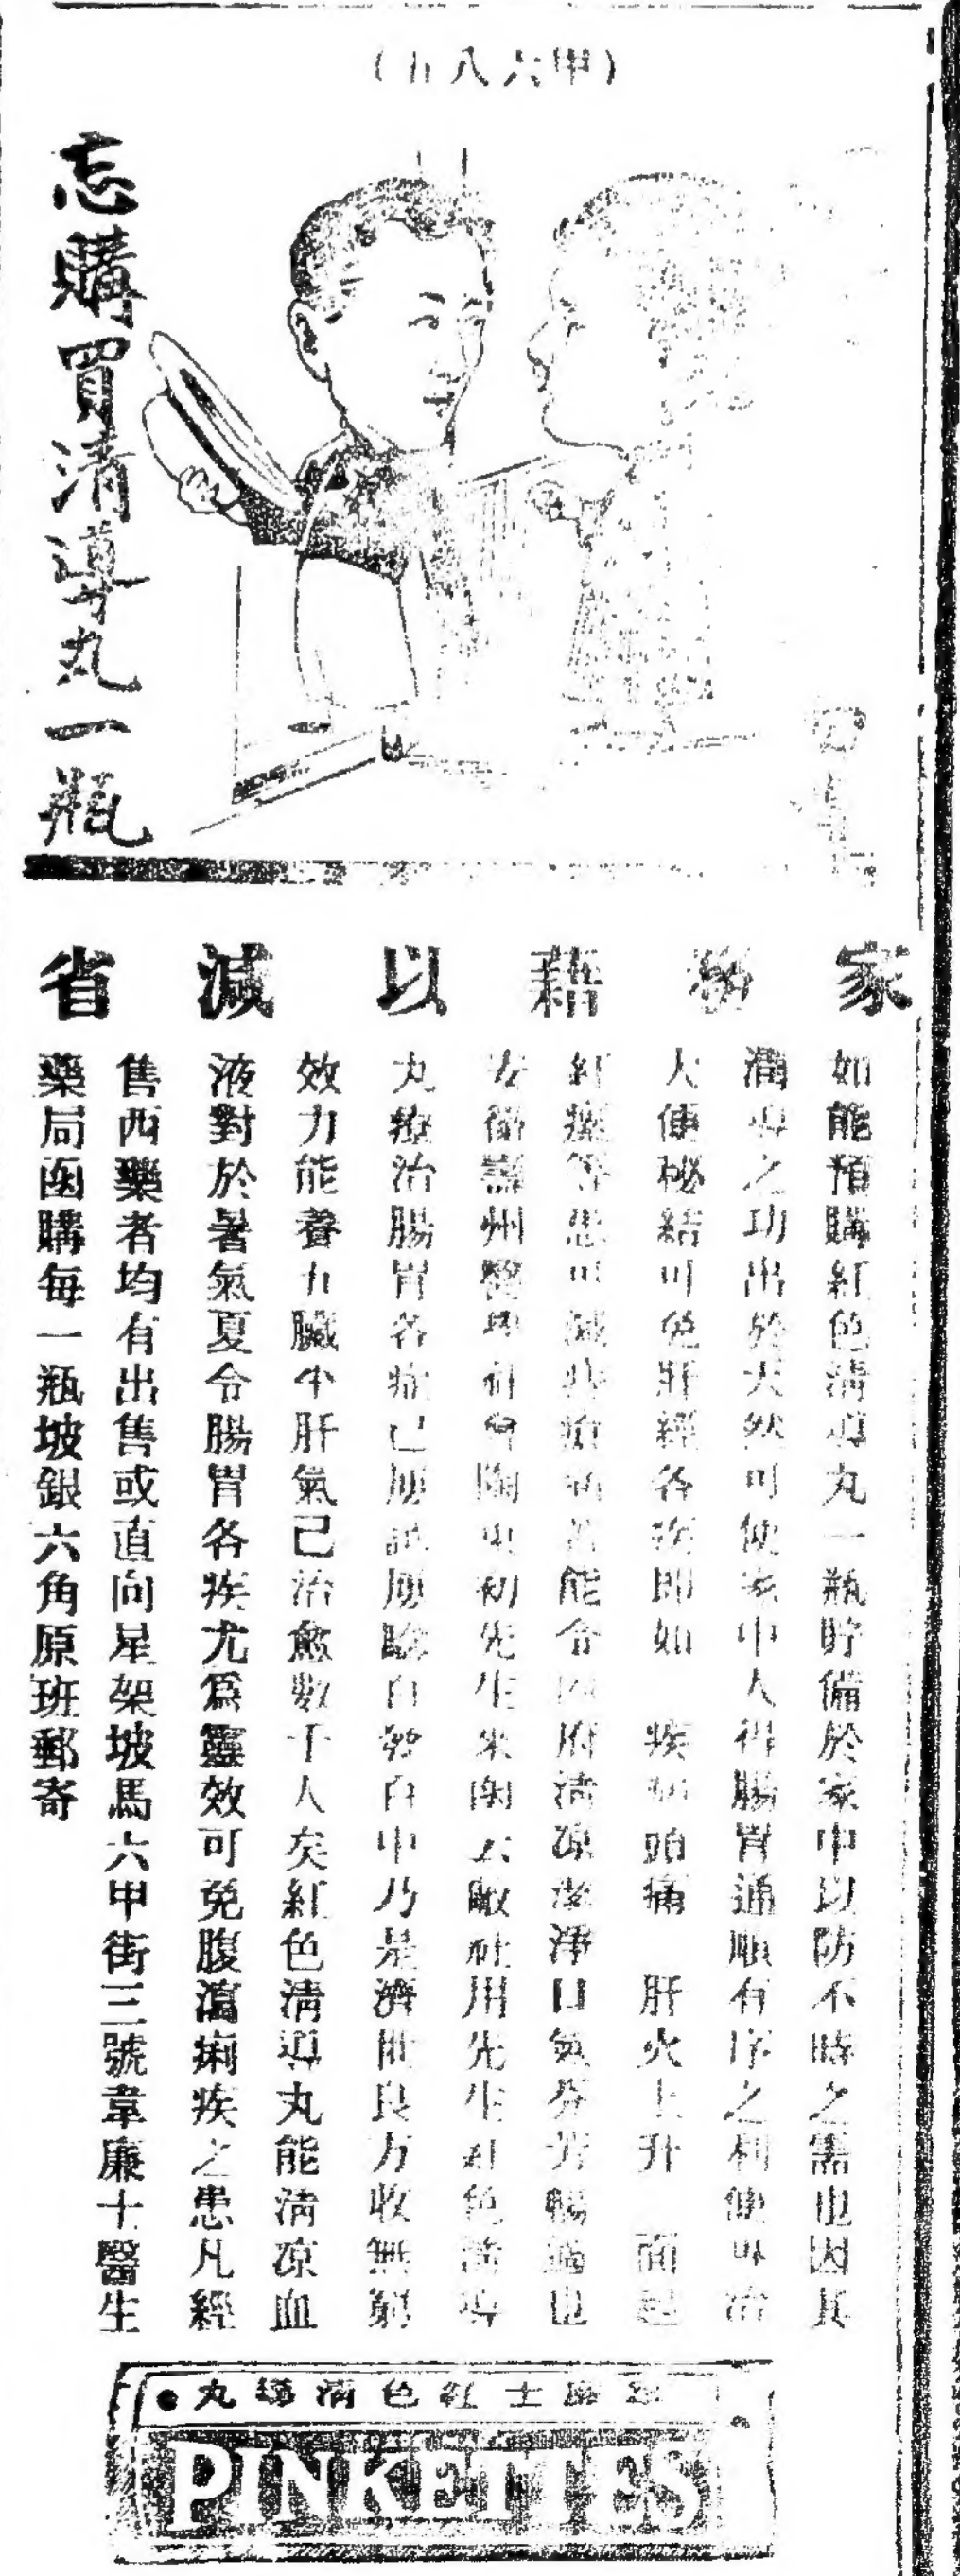 (甲六八五)
忘購買清導丸一瓶
家務藉以減省
如能預購紅色清導丸一瓶貯備於家中以防不時之需也因其
潤導之功出於天然可使家中人得腸胃通順有序之利便毋治
大便秘結可免肝經各疾即如 疾病頭痛 肝火上升 面起
紅瘰等患可減 能令 府清凉潔淨口氣芬芳暢適也
安徽 州醫學社 陶 初先生來函云敝社用先生紅色清導
丸療治腸胃各症已屢試屢驗百發百中乃是濟世良方收無窮
效力能養五臟平肝氣已治愈數千人矣紅色清導丸能清凉血
液對於暑氣夏令腸胃各疾尤爲靈效可免腹瀉痢疾之患凡經
售西藥者均有出售或直向星架坡馬六甲街三號韋廉士醫生
藥局函購每一瓶坡銀六角原班郵寄
韋廉士紅色清導丸
PINKETTES